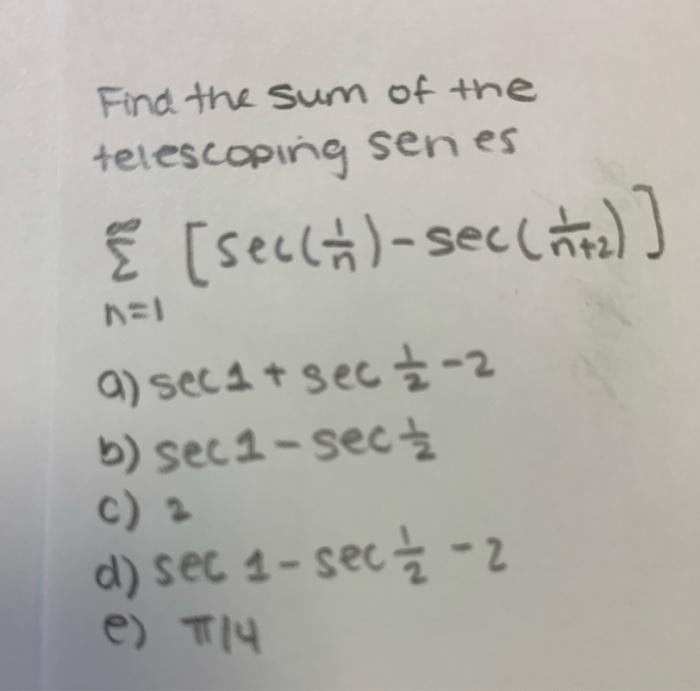 Find the sum of the
telescoping series
∞
Σ [sec(1/n) - sec(1/n+2)]
n=1
a) sec 1 + sec 1/2 - 2
b) sec 1 - sec 1/2
c) 2
d) sec 1 - sec 1/2 - 2
e) π/4